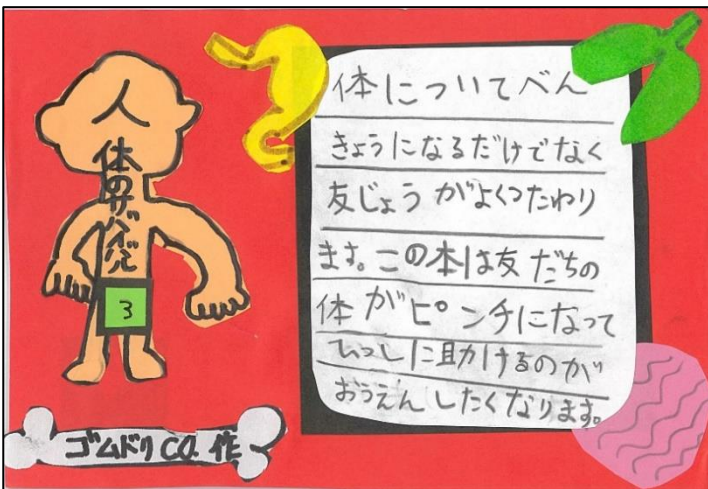 人
体のサバイバル
3
ゴムドリCO.作
体についてべん
きょうになるだけでなく
友じょうがよくつたわり
ます。この本は友だちの
体がピンチになって
ひっしに助けるのが
おうえんしたくなります。